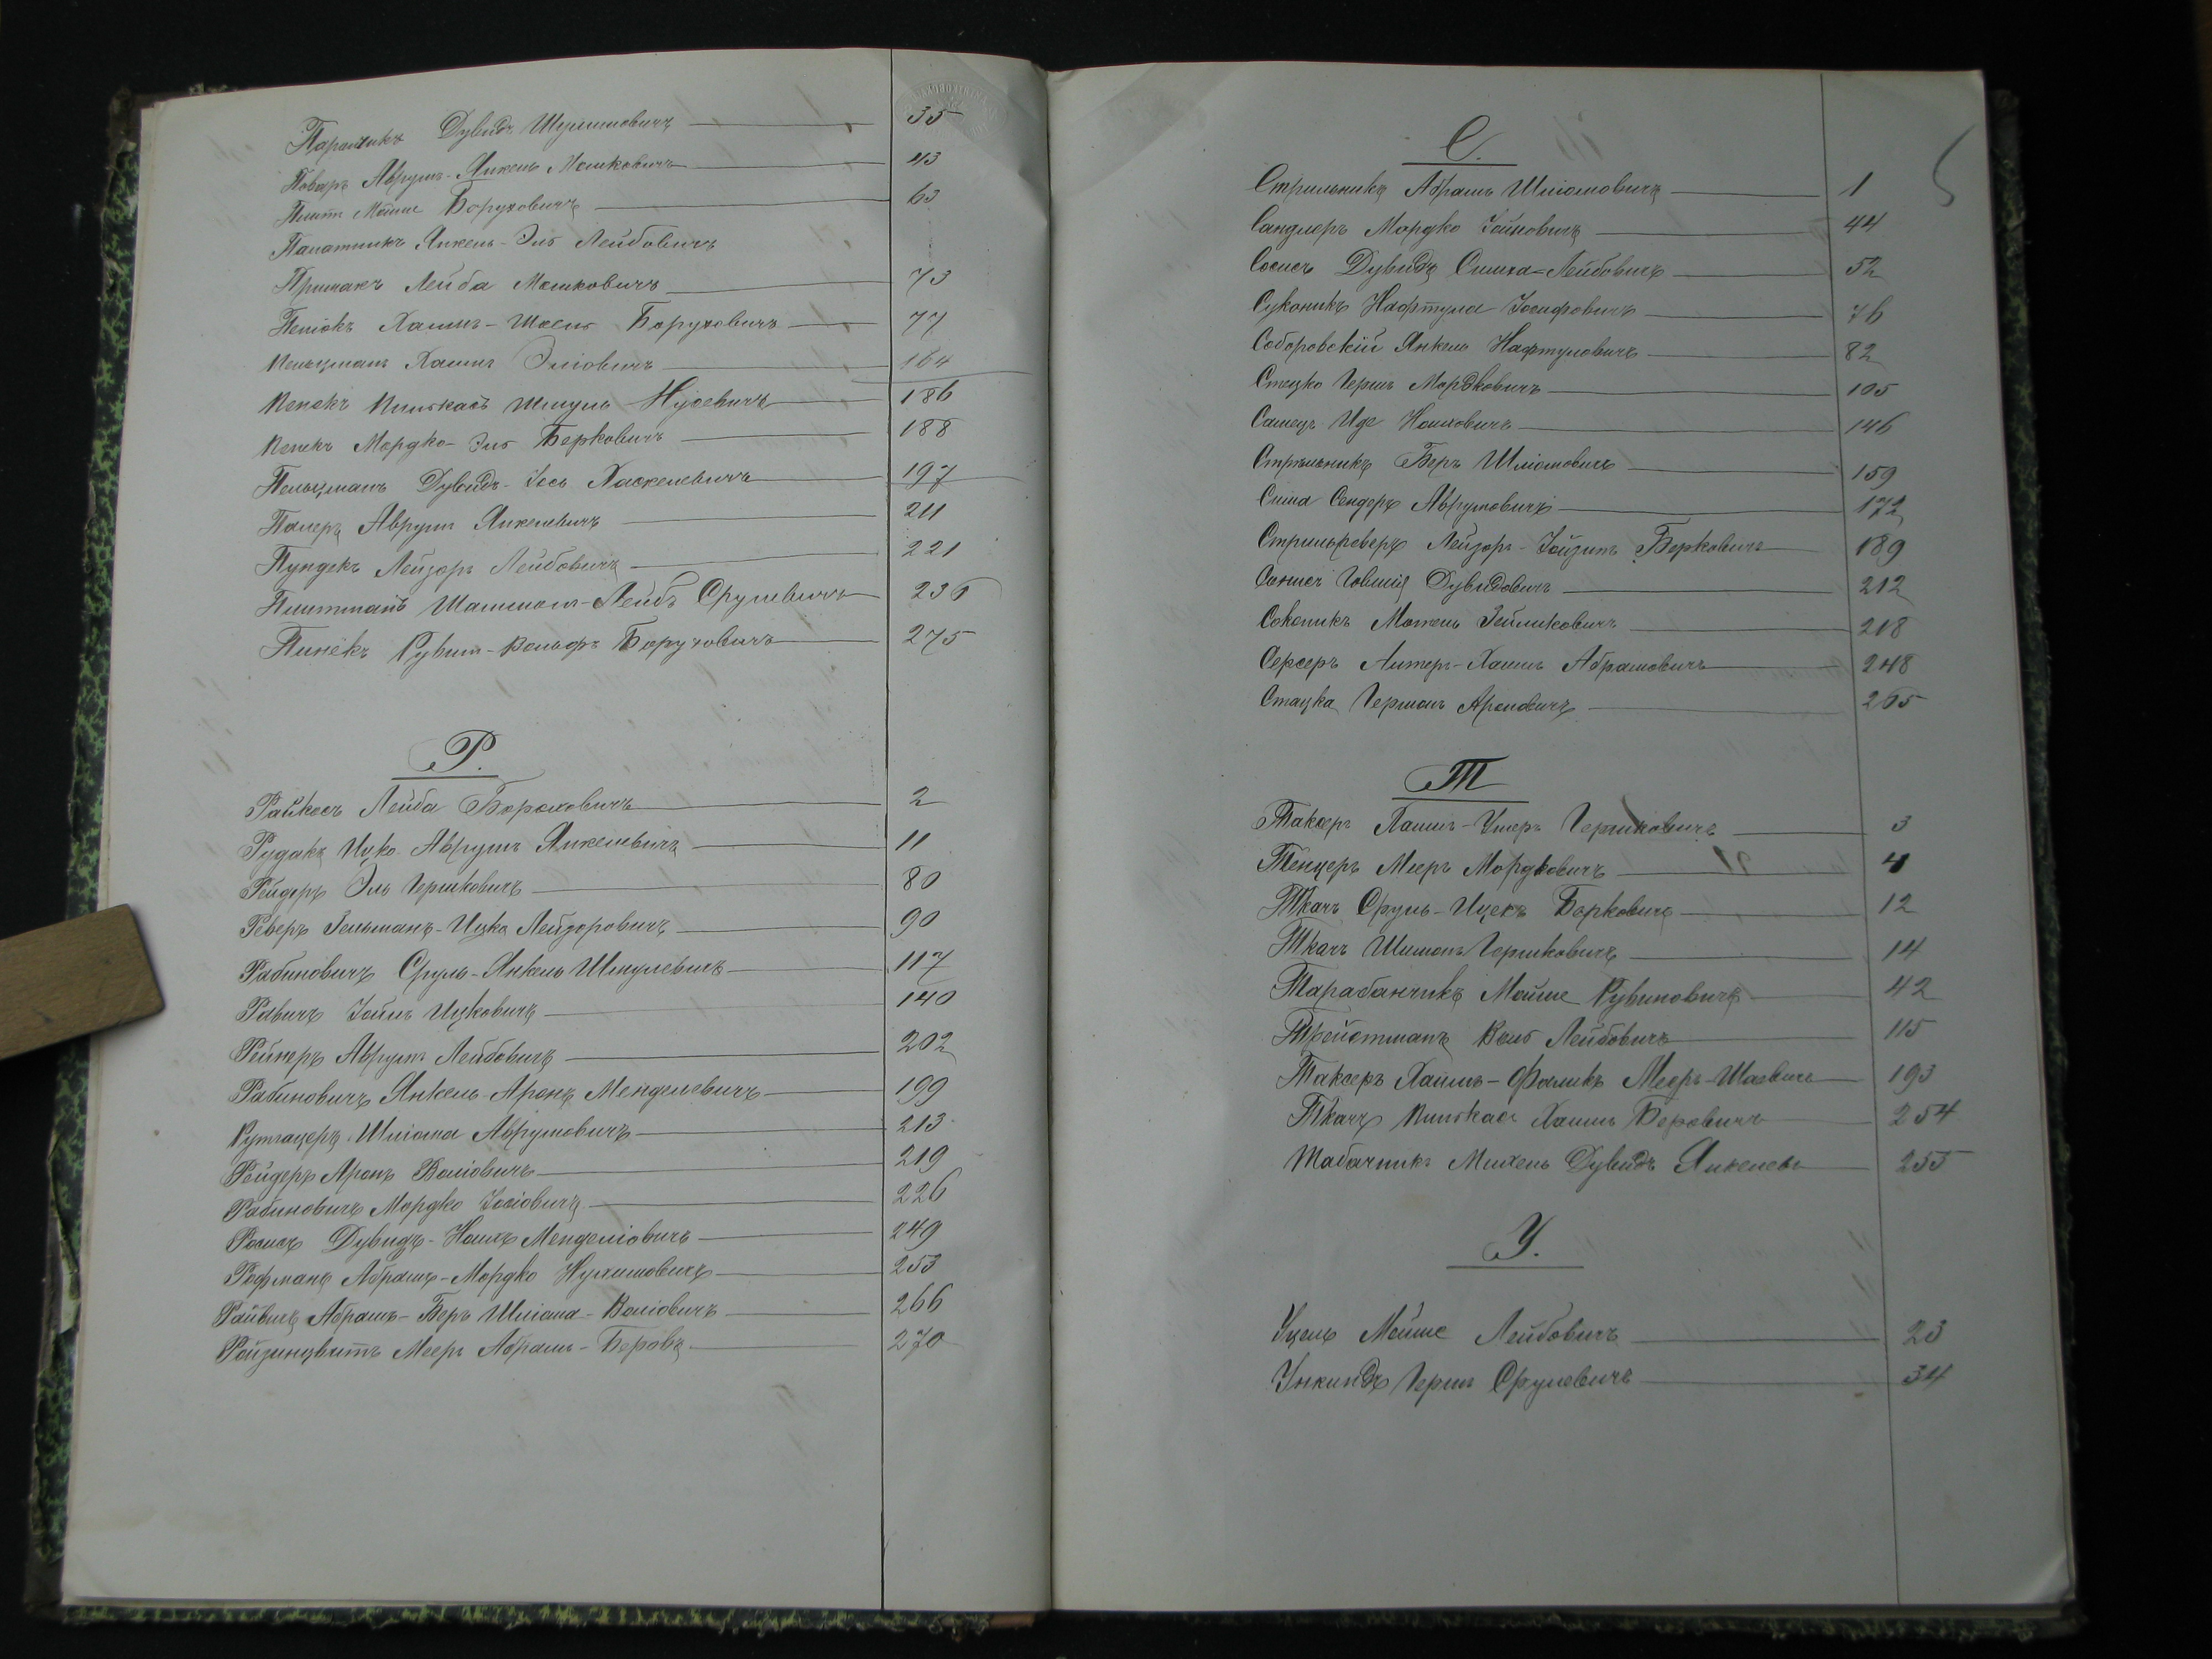 Дувидъ Шулимовичъ 35
Поваръ Аврумъ-Янкель Мошковичъ 43
Мойше Боруховичъ 63
Палатникъ Янкель-Эля Лейбовичъ
Примакъ Лейба Мошковичъ 73
Хаимъ-Шоель Боруховичъ 77
Пельцманъ Хаимъ Эліовичъ 164
Пенекъ Пинскасъ Шмуль Нусевичъ 186
Пенекъ Мордко-Эля Берковичъ 188
Пельцманъ Дувидъ-Іось Хаскелевичъ 197
Палеръ Аврумъ Янкелевичъ 211
Пундекъ Лейзоръ Лейбовичъ 221
Лейбъ Срулевичъ 236
Пинекъ Рувинъ-Вольфъ Боруховичъ 275
Р.
Райкосъ Лейба Бороховичъ 2
Рудакъ Ицко-Аврумъ Янкелевичъ 11
Рейдеръ Эль Гершковичъ 80
Реверъ Зельманъ-Ицко Лейзоровичъ 90
Рабиновичъ Сруль-Янкель Шмулевичъ 117
Равичъ Іойль Ицковичъ 140
Рейнеръ Аврумъ Лейбовичъ 202
Рабиновичъ Янкель-Аронъ Менделевичъ 199
Шліома Аврумовичъ 213
Рейдеръ Аронъ Воліовичъ 219
Рабиновичъ Мордко Іосіовичъ 226
Дувидъ-Ноихъ Менделіовичъ 249
Рофманъ Абрамъ-Мордко Нухимовичъ 253
Абрамъ-Беръ Шліома-Воліовичъ 266
Ройзинцвитъ Мееръ Абрамъ-Беровъ 270
С.
Стрильникъ Абрамъ Шліомовичъ 1
Сандлеръ Мордко Іойновичъ 44
Дувидъ Симха-Лейбовичъ 52
Суконикъ Нафтула Іосифовичъ 76
Соборовскій Янкель Нафтуловичъ 82
Стецко Гершъ Мордковичъ 105
Самецъ Иде Ноиховичъ 146
Стрѣльникъ Беръ Шліомовичъ 159
Сима Сендеръ Аврумовичъ 172
Стрильреверъ Лейзоръ-Іойзипъ Берковичъ 189
Говшія Дувидовичъ 212
Соколикъ Мотель Зейликовичъ 218
Серсеръ Алтеръ-Хаимъ Абрамовичъ 248
Стацка Германъ Ароновичъ 265
Т
Таксеръ Хаимъ-Ушеръ Гершковичъ 3
Тенцеръ Мееръ Мордковичъ 4
Ткачъ Сруль-Ицекъ Берковичъ 12
Ткачъ Шимонъ Гершковичъ 14
Тарабанчикъ Мойше Рувиновичъ 42
Трейстманъ Воля Лейбовичъ 115
Таксеръ Хаимъ-Фаликъ Мееръ-Шаевичъ 193
Ткачъ Пинскасъ Хаимъ Беровичъ 254
Табачникъ Михель Дувидъ Янкелевъ 255
У.
Уцель Мойше Лейбовичъ 23
Ункиндъ Гершъ Срулевичъ 34